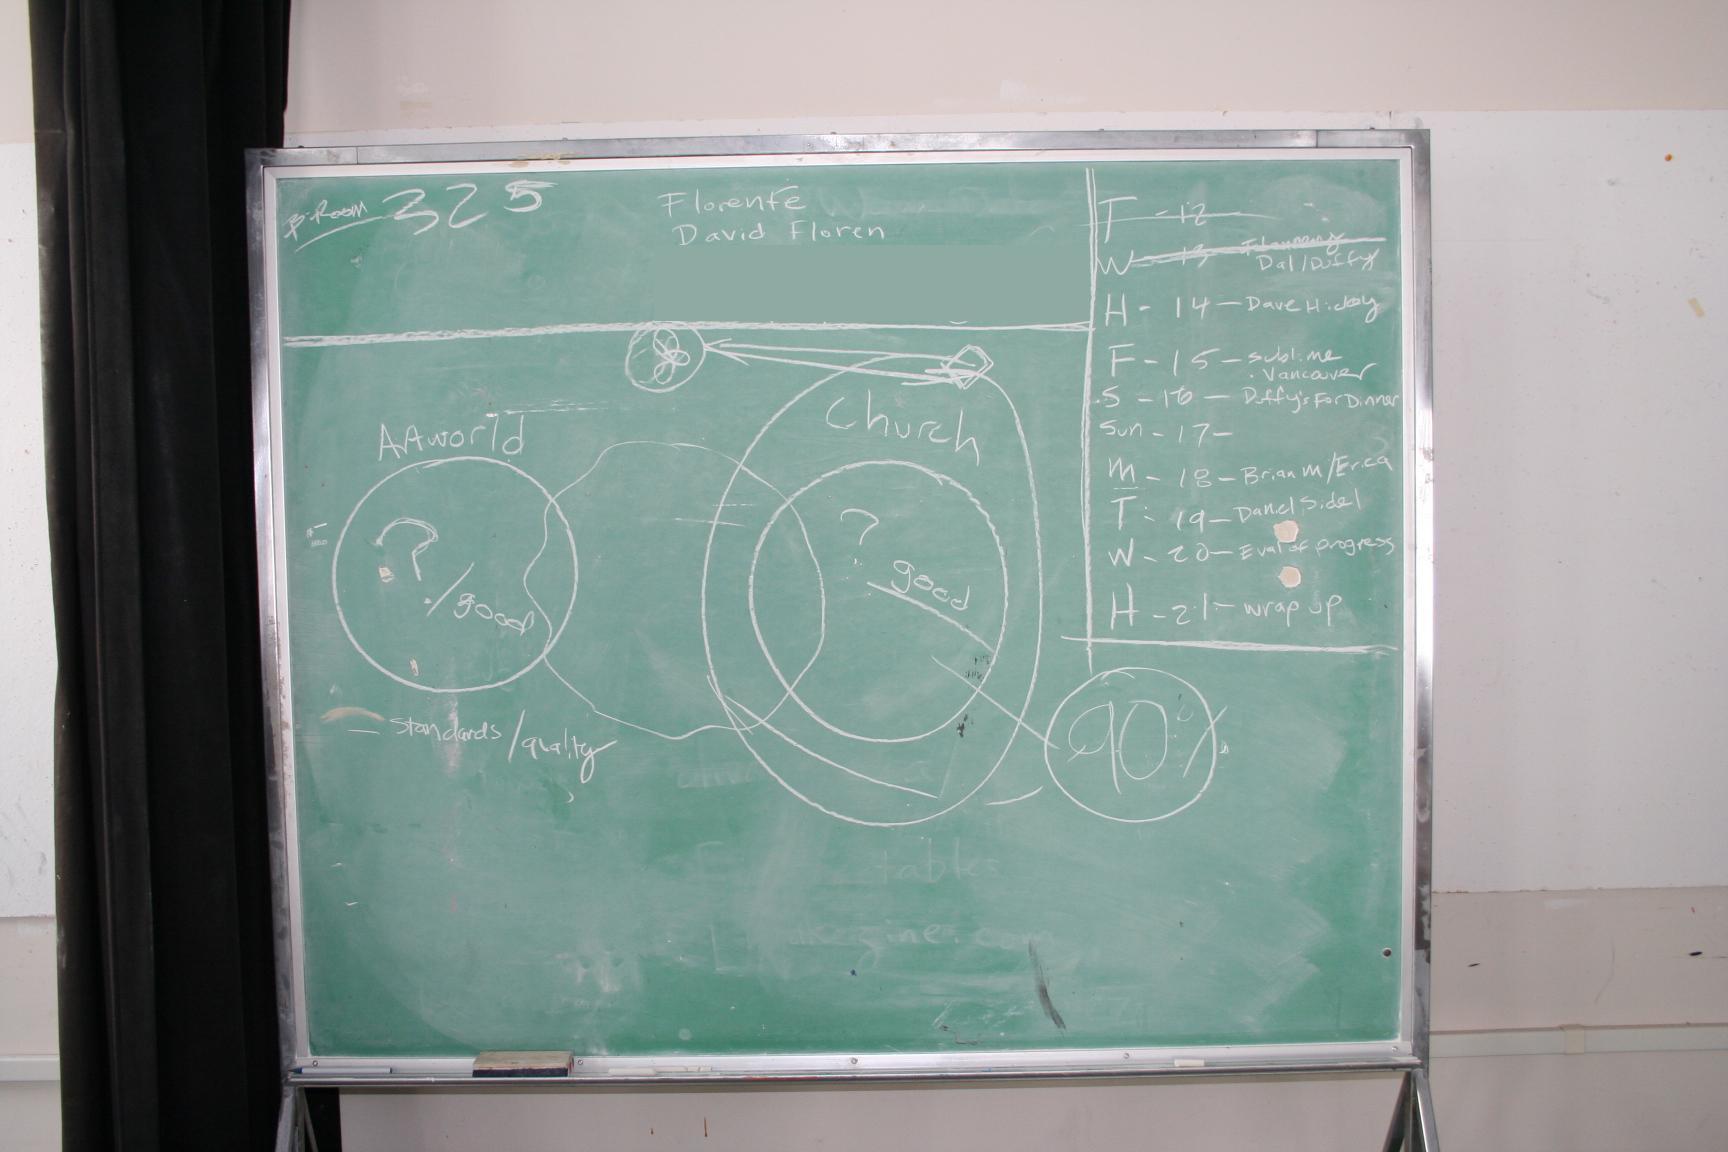 B-Room 325
Florente
David Floren
T - 12
W - 13 - Planning
Dal/Duffy
H - 14 - Dave Hickey
F - 15 - Sublime
. Vancouver
S - 16 - Duffy's For Dinner
Sun - 17 -
M - 18 - Brian M/Erica
T - 19 - Daniel Sidel
W - 20 - Eval of progress
H - 21 - wrap up
Church
AAworld
?
good
? / good
90%
— standards / quality
tables